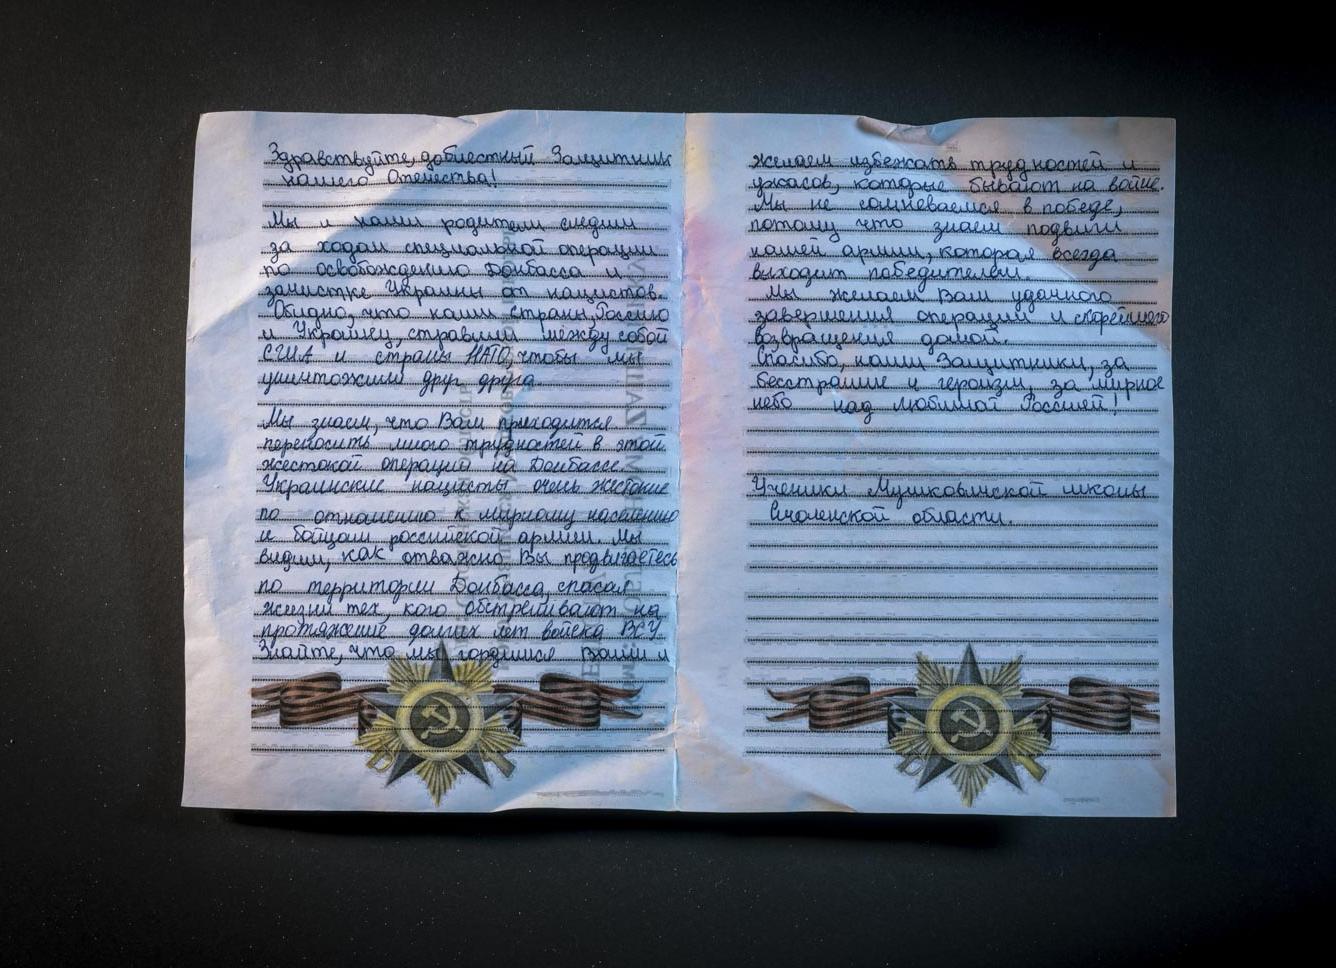 Здравствуйте, доблестный Защитник
нашего Отечества!
Мы и наши родители следим
за ходом специальной операции
по освобождению Донбасса и
зачистке Украины от нацистов.
Обидно, что наши страны, Россию
и Украину, стравили между собой
США и страны НАТО, чтобы мы
уничтожили друг друга
Мы знаем, что Вам приходится
переносить много трудностей в этой
жестокой операции на Донбассе.
Украинские нацисты очень жестокие
по отношению к мирному населению
и бойцам российской армии. Мы
видим, как отважно Вы продвигаетесь
по территории Донбасса, спасая
жизни тех, кого обстреливают на
протяжение долгих лет войска ВСУ.
Знайте, что мы гордимся Вами и
желаем избежать трудностей и
ужасов, которые бывают на войне.
Мы не сомневаемся в победе,
потому что знаем подвиги
нашей армии, которая всегда
выходит победителем.
Мы желаем Вам удачного
завершения операции и скорейшего
возвращения домой.
Спасибо, наши Защитники, за
бесстрашие и героизм, за мирное
небо над любимой Россией!
Ученики Мушковичской школы
Смоленской области.